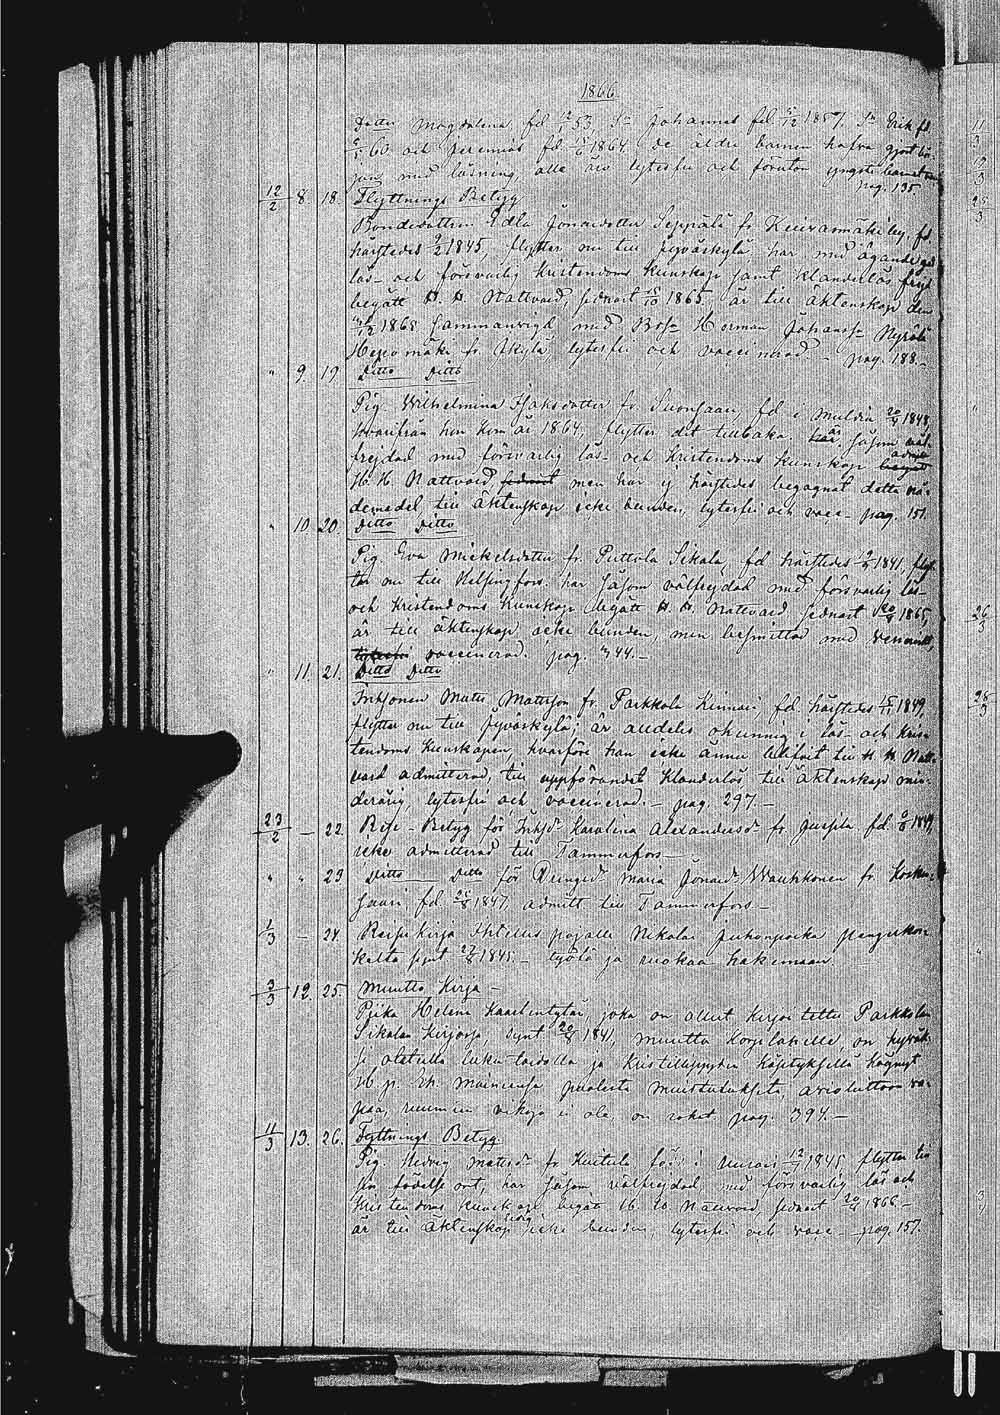 1866
Dotter Magdalena, fd 12/1 53, Sn Johannes fd 27/12 1857, Sn Erik fd
5/5 60 och Jeremias fd 1864. De äldre barnen hafva gjort bör-
jan med läsning, alla äro lytesfri och förutan yngsta barnet
pag. 135
12/2 8 18. Flyttnings Betyg
Bondedottren Edla Jonaedotter Seppälä fr. Kuivasmäki by, fd
härstedes 9/2 1845, flytter nu till Jyväskylä, har med ägande god
läs- och försvarlig Kristendoms kunskap samt klanderlös frejd
begått H. H. Nattvard, sednast 15/10 1865, är till äktenskap den
1865 sammanvigd med Johansson
fr. Jkylä, lytesfri och vaccinerad - pag. 188.-
" 9. 19 Ditto Ditto
Pig. Wilhelmina Isaksdotter fr. Suonsaari, fd i Muldia 20/4 1848,
hvarifrån hon kom år 1864, flytter dit tillbaka. har såsom väl-
frejdad med försvarlig läs- och Kristendoms kunskap
H. H. Nattvard, sednast men har ej härstedes begagnat detta nå-
demedel, till äktenskap icke bunden, lytesfri och vacc - pag. 151.
" 10. 20. Ditto Ditto
Pig. Eva Mickelsdotter fr. Puttola Sikala, fd härstedes 1841, flyt-
ter nu till Helsingfors. har såsom välfrejdad med försvarlig läs-
och Kristendoms kunskap begått H. H. Nattvard sednast 1865,
är till äktenskap icke bunden, men besmittad med venerisk,
lytesfri vaccinerad. pag. 344.-
" 11. 21. Ditto Ditto
Inhsonen Matts Mattsson fr. Parkkola Kinnari, fd härstedes 15/11 1849,
flytter nu till Jyväskylä; är alldeles okunnig i läs- och Kris-
tendoms kunskapen, hvarföre han icke ännu blifvit till H. H. Natt-
vard admitterad, till uppförandet klanderlös till äktenskap min-
derårig, lytesfri och vaccinerad.- pag. 297.-
23/2 - 22. Rese-Betyg för Inhsd. Karolina Alexandersd. fr. Jussila fd. 1849,
icke admitterad till Tammerfors-
" " 23 Ditto Ditto för Drängsd. Maria Jonasd. Waukkonen fr. Kosken-
saari fd. 1847, admitt till Tammerfors-
1/3 - 24. Reisu Kirja Itsellis pojalle Nikolai Juhonpoika
kalta synt 1845.- työtä ja ruokaa hakemaan.
3/3 12. 25. Muutto Kirja -
Piika Helena Kaarlentytär, joka on ollut kirjoitettu Parkkolan
Sikalan kirjossa, synt 20/8 1841, muutta Korpilahdelle, on hyväk-
si otetulla luku-taidolla ja Kristillisyyden käsityksellä käynyt
H. p. Eh. puolesta avioliittoon va-
paa, ruumiin vikoja ei ole, on rokot pag. 394.-
11/3 13. 26. Flyttnings Betyg.
Pig. Hedvig Mattsd. fr. Kuitula född i Ruovesi 12/7 1845 flytter till
sin födelse ort, har såsom välfrejdad med försvarlig läs och
Kristendoms kunskap begått H. H. Nattvard, sednast 1866 -
är till äktenskap ledig icke bunden, lytesfri och vacc - pag. 157.